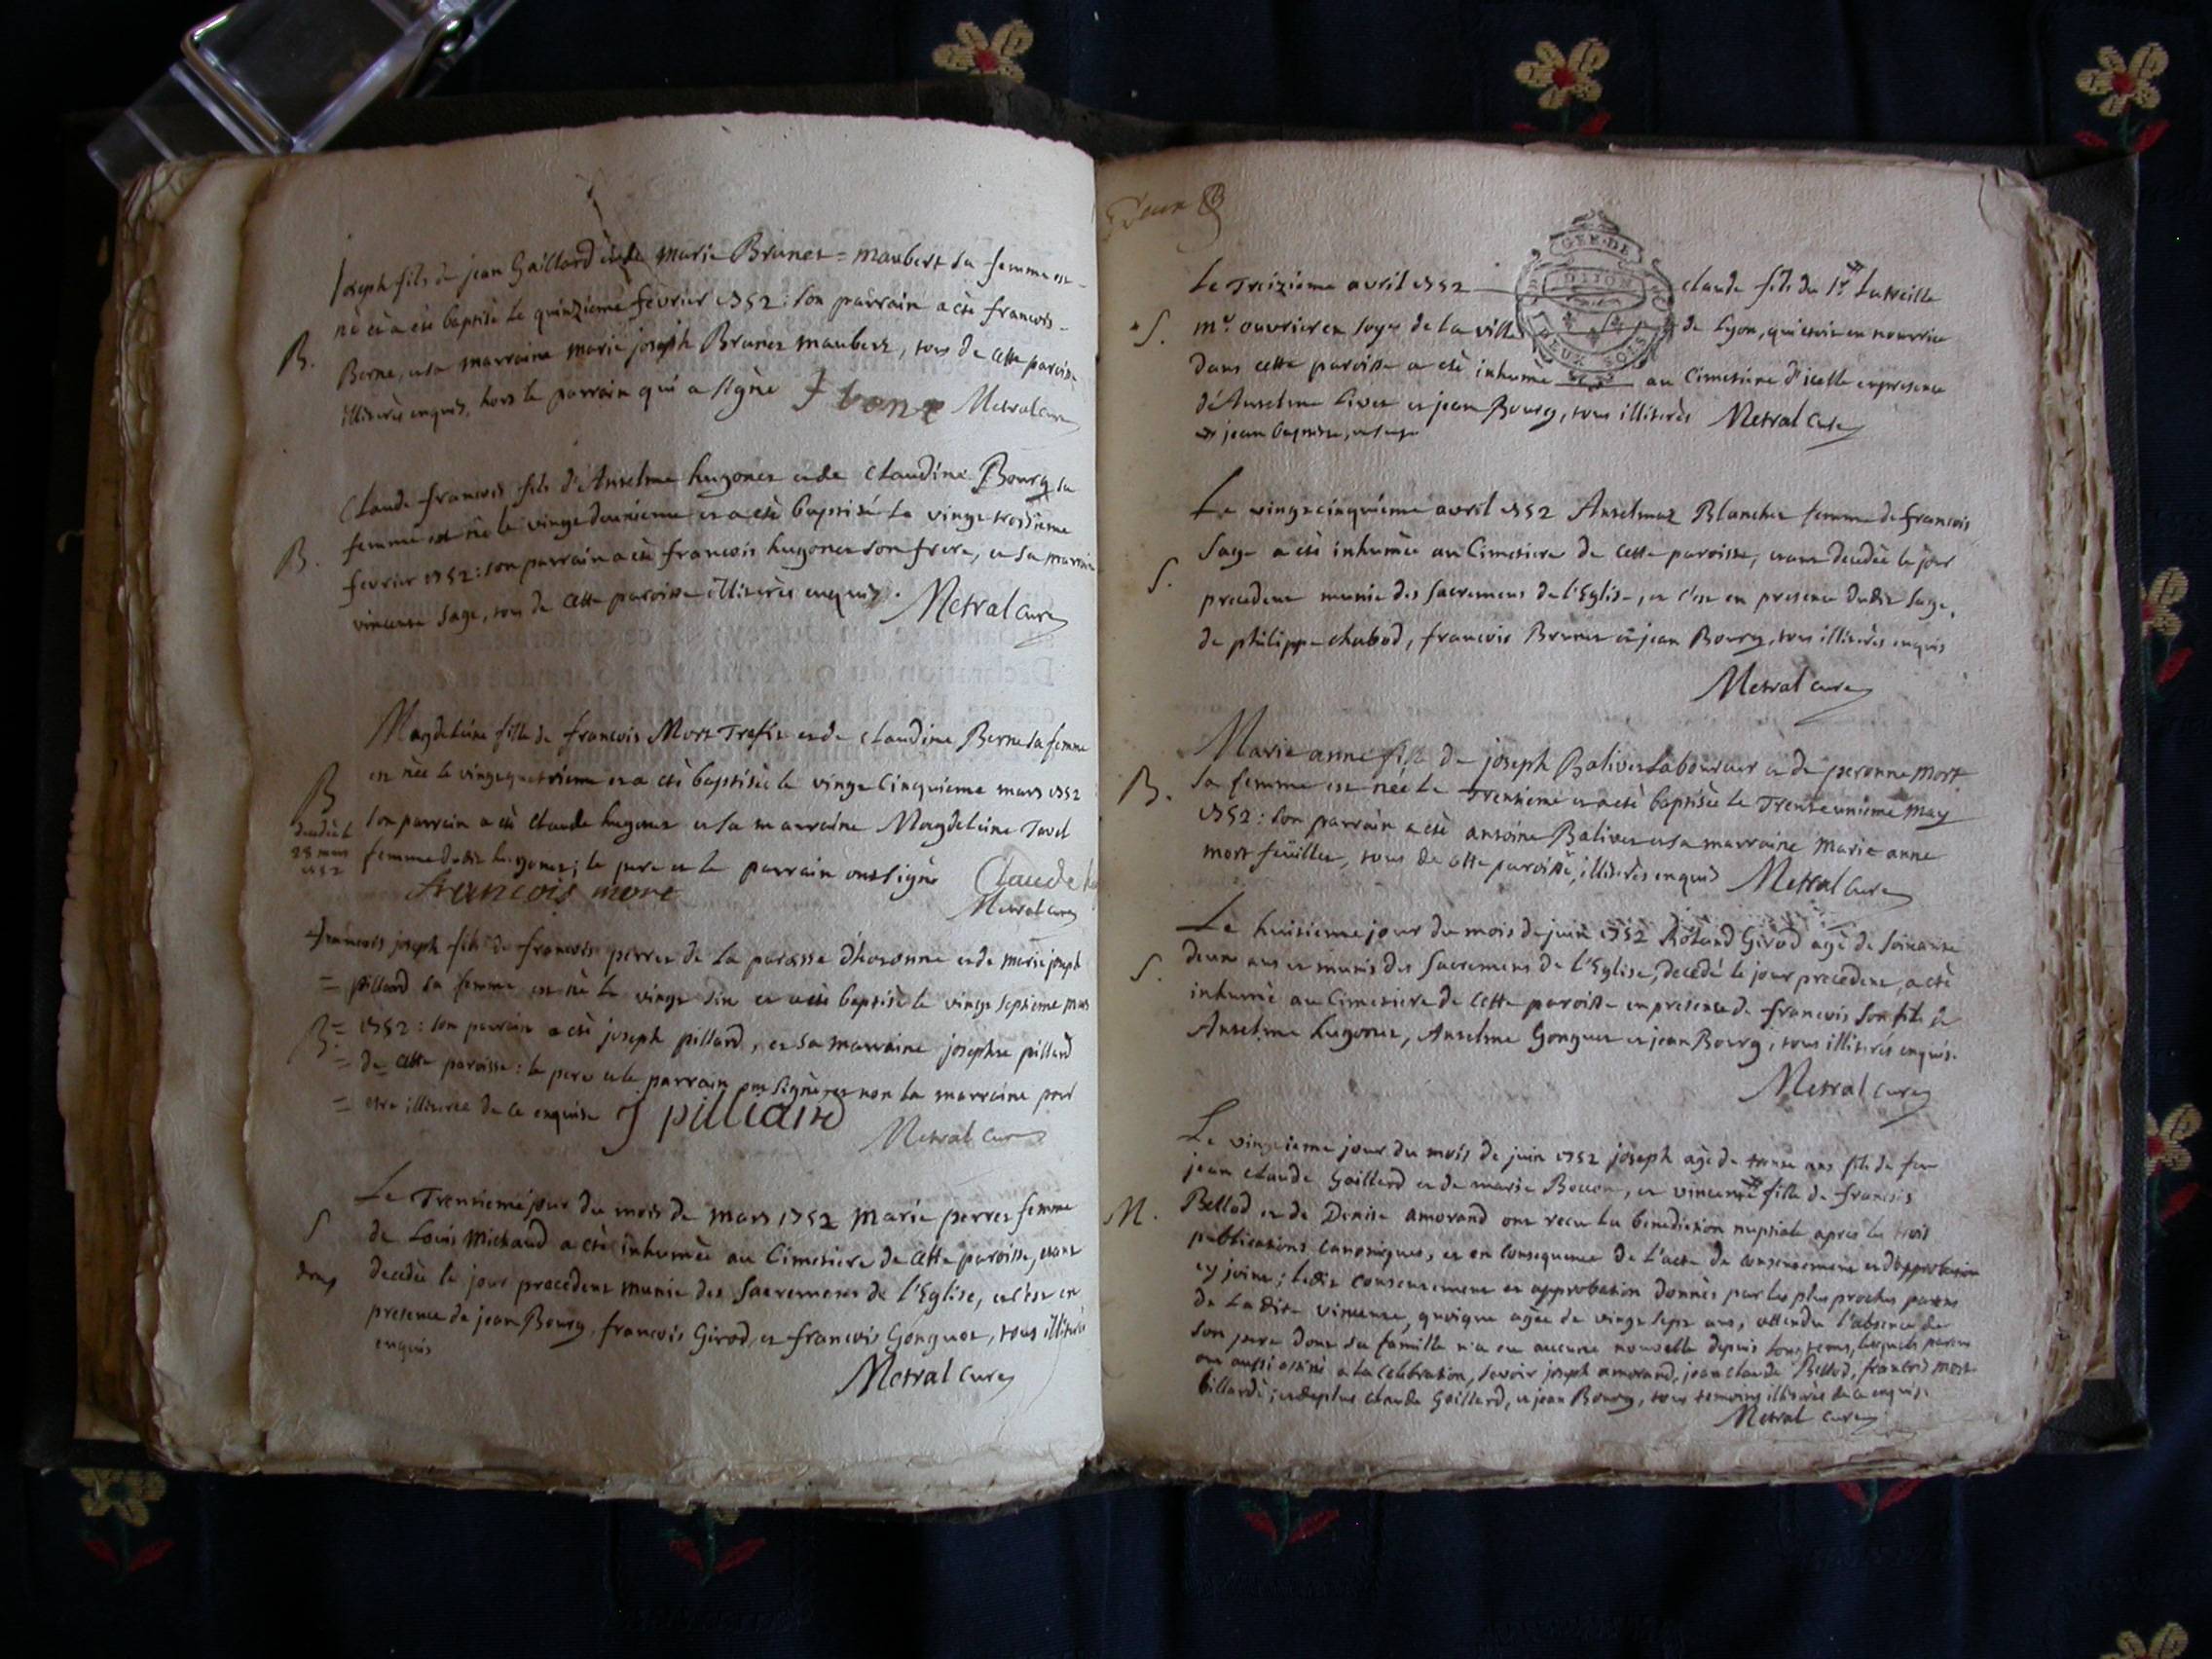 Joseph fils de jean Gaillard et de marie Brunet = maubert sa femme est
né et a été baptisé le quinzieme fevrier 1752 : son parrain a eté francois
B. Berne, et sa marraine marie joseph Brunet maubert, tous de cette paroisse
illiterés enquis, hors le parrain qui a signé f berne Metral curé
Claude francois fils d'Anselme hugonet et de Claudine Bourg sa
femme est né le vingt deuxieme et a eté baptisé le vingt troisieme
B. fevrier 1752 : son parrain a eté francois hugonet son frere, et sa marraine
vincente Sage, tous de cette paroisse illiterés enquis. Metral curé
Magdeleine fille de francois Mort Trafit et de claudine Berne sa femme
est née le vingt quatrieme et a eté baptisée le vingt cinquieme mars 1752
B son parrain a eté claude hugonet et sa marraine Magdeleine Tavel
decedée le
28 mars
1752
femme dudit hugonet; le pere et le parrain ont signé Claude
francois mort Metral curé
francois joseph fils de francois perret de la paroisse d'hotonne et de marie joseph
= pillard sa femme est né le vingt six et a eté baptisé le vingt septieme mars
B = 1752 : son parrain a eté joseph pillard, et sa marraine josephte pillard
= de cette paroisse : le pere et le parrain ont signé et non la marraine pour
= etre illiterée de ce enquise J pilliard
Metral curé
Le Trentieme jour du mois de mars 1752 Marie perret femme
S de Louis Michaud a eté inhumée au Cimetiere de cette paroisse, etant
decedée le jour precedent munie des Sacremens de l'Eglise, et c'est en
presence de jean Bourg, francois Girod, et francois Gonguet, tous illiterés
enquis
Metral curé
GEN. DE
DIJON
DEUX SOLS
Le Treizieme avril 1752 claude fils du Sr. Latreille
S. mr. ouvrier en soye de la ville de Lyon, qui etoit en nourrice
dans cette paroisse a eté inhumé au Cimetiere d'icelle en presence
d'Anselme Livet et jean Bourg, tous illiterés Metral Curé
Le vingt cinquieme avril 1752 Anselmaz Blanchet femme de francois
Sage a eté inhumée au Cimetiere de cette paroisse, etant decedée le jour
S. precedent munie des Sacremens de l'Eglise, et c'est en presence dudit Sage,
de philippe chabod, francois Brunet et jean Bourg, tous illiterés enquis
Metral curé
Marie anne fille de joseph Balivet Laboureur et de peronne Mort
B. sa femme est née le Trentieme et a eté baptisée le Trente unieme May
1752 : son parrain a eté antoine Balivet et sa marraine Marie anne
mort feüillet, tous de cette paroisse, illiterés enquis Metral Curé
Le huitieme jour du mois de juin 1752 Roland Girod agé de soixante
S. deux ans et munis des Sacremens de l'Eglise, decedé le jour precedent, a eté
inhumé au Cimetiere de cette paroisse en presence de francois son fils de
Anselme hugonet, Anselme Gonguet et jean Bourg, tous illiterés enquis.
Metral curé
Le vingtieme jour du mois de juin 1752 joseph agé de trente ans fils de feu
jean claude Gaillard et de marie Bouon, et vincente fille de francois
M. Bellod et de Denise amorand ont recu la benediction nuptiale apres les trois
publications canoniques, et en consequence de l'acte de consentement et d'approbation
cy joint; ledit consentement et approbation donnés par les plus proches parens
de Ladite vincente, quoique agée de vingt sept ans, attendu l'absence de
son pere dont sa famille n'a eu aucune nouvelle depuis longtems, lesquels parens
ont aussi assisté a la celebration, savoir joseph amorand, jean claude Bellod, francois mort
billardé; et de plus claude Gaillard, et jean Bourg, tous temoins illiterés de ce enquis.
Metral curé